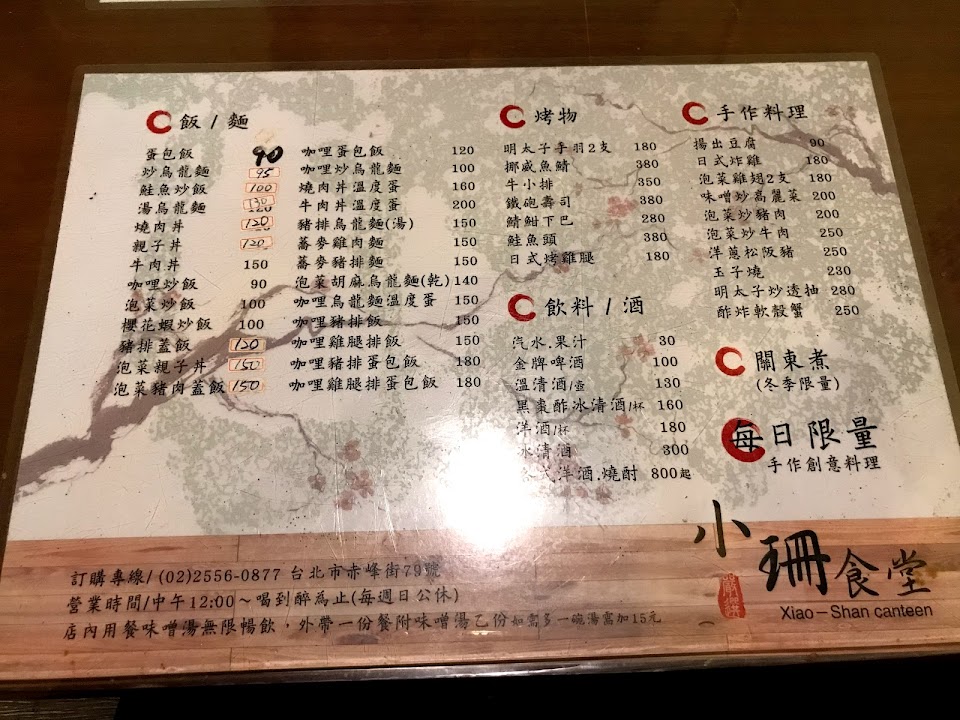 飯 / 麵
蛋包飯 90
炒烏龍麵 95
鮭魚炒飯 100
湯烏龍麵 130
燒肉丼 120
親子丼 120
牛肉丼 150
咖哩炒飯 90
泡菜炒飯 100
櫻花蝦炒飯 100
豬排蓋飯 120
泡菜親子丼 150
泡菜豬肉蓋飯 150
咖哩蛋包飯 120
咖哩炒烏龍麵 100
燒肉丼溫度蛋 160
牛肉丼溫度蛋 200
豬排烏龍麵(湯) 150
蕎麥雞肉麵 150
蕎麥豬排麵 150
泡菜胡麻烏龍麵(乾) 140
咖哩烏龍麵溫度蛋 150
咖哩豬排飯 150
咖哩雞腿排飯 150
咖哩豬排蛋包飯 180
咖哩雞腿排蛋包飯 180
烤物
明太子手羽2支 180
挪威魚鯖 380
牛小排 350
鐵砲壽司 380
鯖魽下巴 280
鮭魚頭 380
日式烤雞腿 180
飲料 / 酒
汽水.果汁 30
金牌啤酒 100
溫清酒/壺 130
黑棗酢冰清酒/杯 160
洋酒/杯 180
冰清酒 300
式洋酒.燒酎 800起
手作料理
揚出豆腐 90
日式炸雞 180
泡菜雞翅2支 180
味噌炒高麗菜 200
泡菜炒豬肉 200
泡菜炒牛肉 250
洋蔥松阪豬 250
玉子燒 230
明太子炒透抽 280
酢炸軟殼蟹 250
關東煮
(冬季限量)
每日限量
手作創意料理
小珊食堂
Xiao-Shan canteen
訂購專線/ (02)2556-0877 台北市赤峰街79號
營業時間/中午12:00~喝到醉為止(每週日公休)
店內用餐味噌湯無限暢飲，外帶一份餐附味噌湯乙份如需多一碗湯需加15元